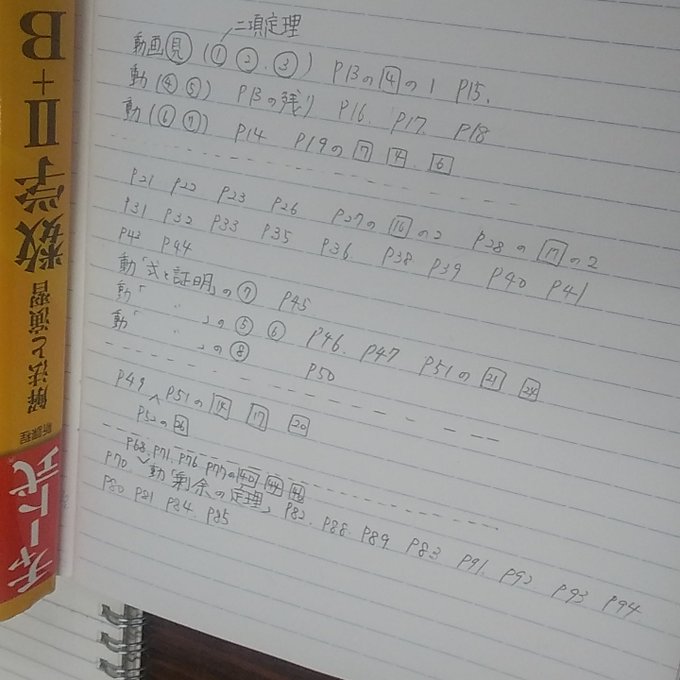 二項定理
動画㊙見 (① ②. ③) P13の4の1 P15.
動 (④ ⑤) P13の残り P16. P17. P18
動 (⑥ ⑦) P14 P19の 7 4. 6
P21 P22 P23 P26 P27の 16 の2 P28の 17 の2
P31 P32 P33 P35 P36 P38 P39 P40 P41
P43 P44
動「式と証明」の⑦ P45
動「 〃 」の⑤ ⑥ P46. P47 P51の 21 24
動「 〃 」の⑧ P50
P49 P51の 15 17 20
P52の 26
P68. P71. P76 P77の 40 44 48
P70 動「剰余の定理」 P82. P88. P89 P83 P91. P92 P93 P94
P80 P81 P84. P85
チャート式
新課程
解法と演習
数学Ⅱ+B